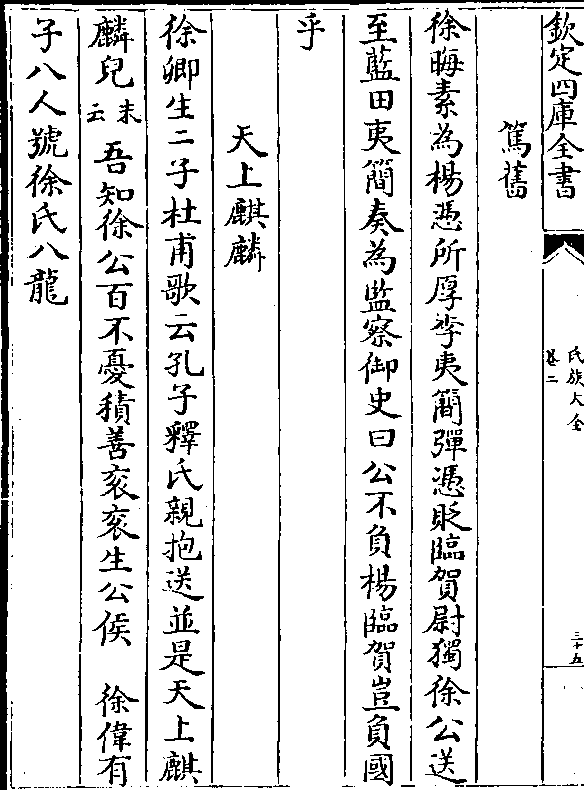 欽定四庫全書
氏族大全
卷二
三十五
篤舊
徐晦素為楊憑所厚李夷簡彈憑貶臨賀尉獨徐公送
至藍田夷簡奏為監察御史曰公不負楊臨賀豈負國
乎
天上麒麟
徐卿生二子杜甫歌云孔子釋氏親抱送並是天上麒
麟兒末云吾知徐公百不憂積善衮衮生公侯　徐偉有
子八人號徐氏八龍